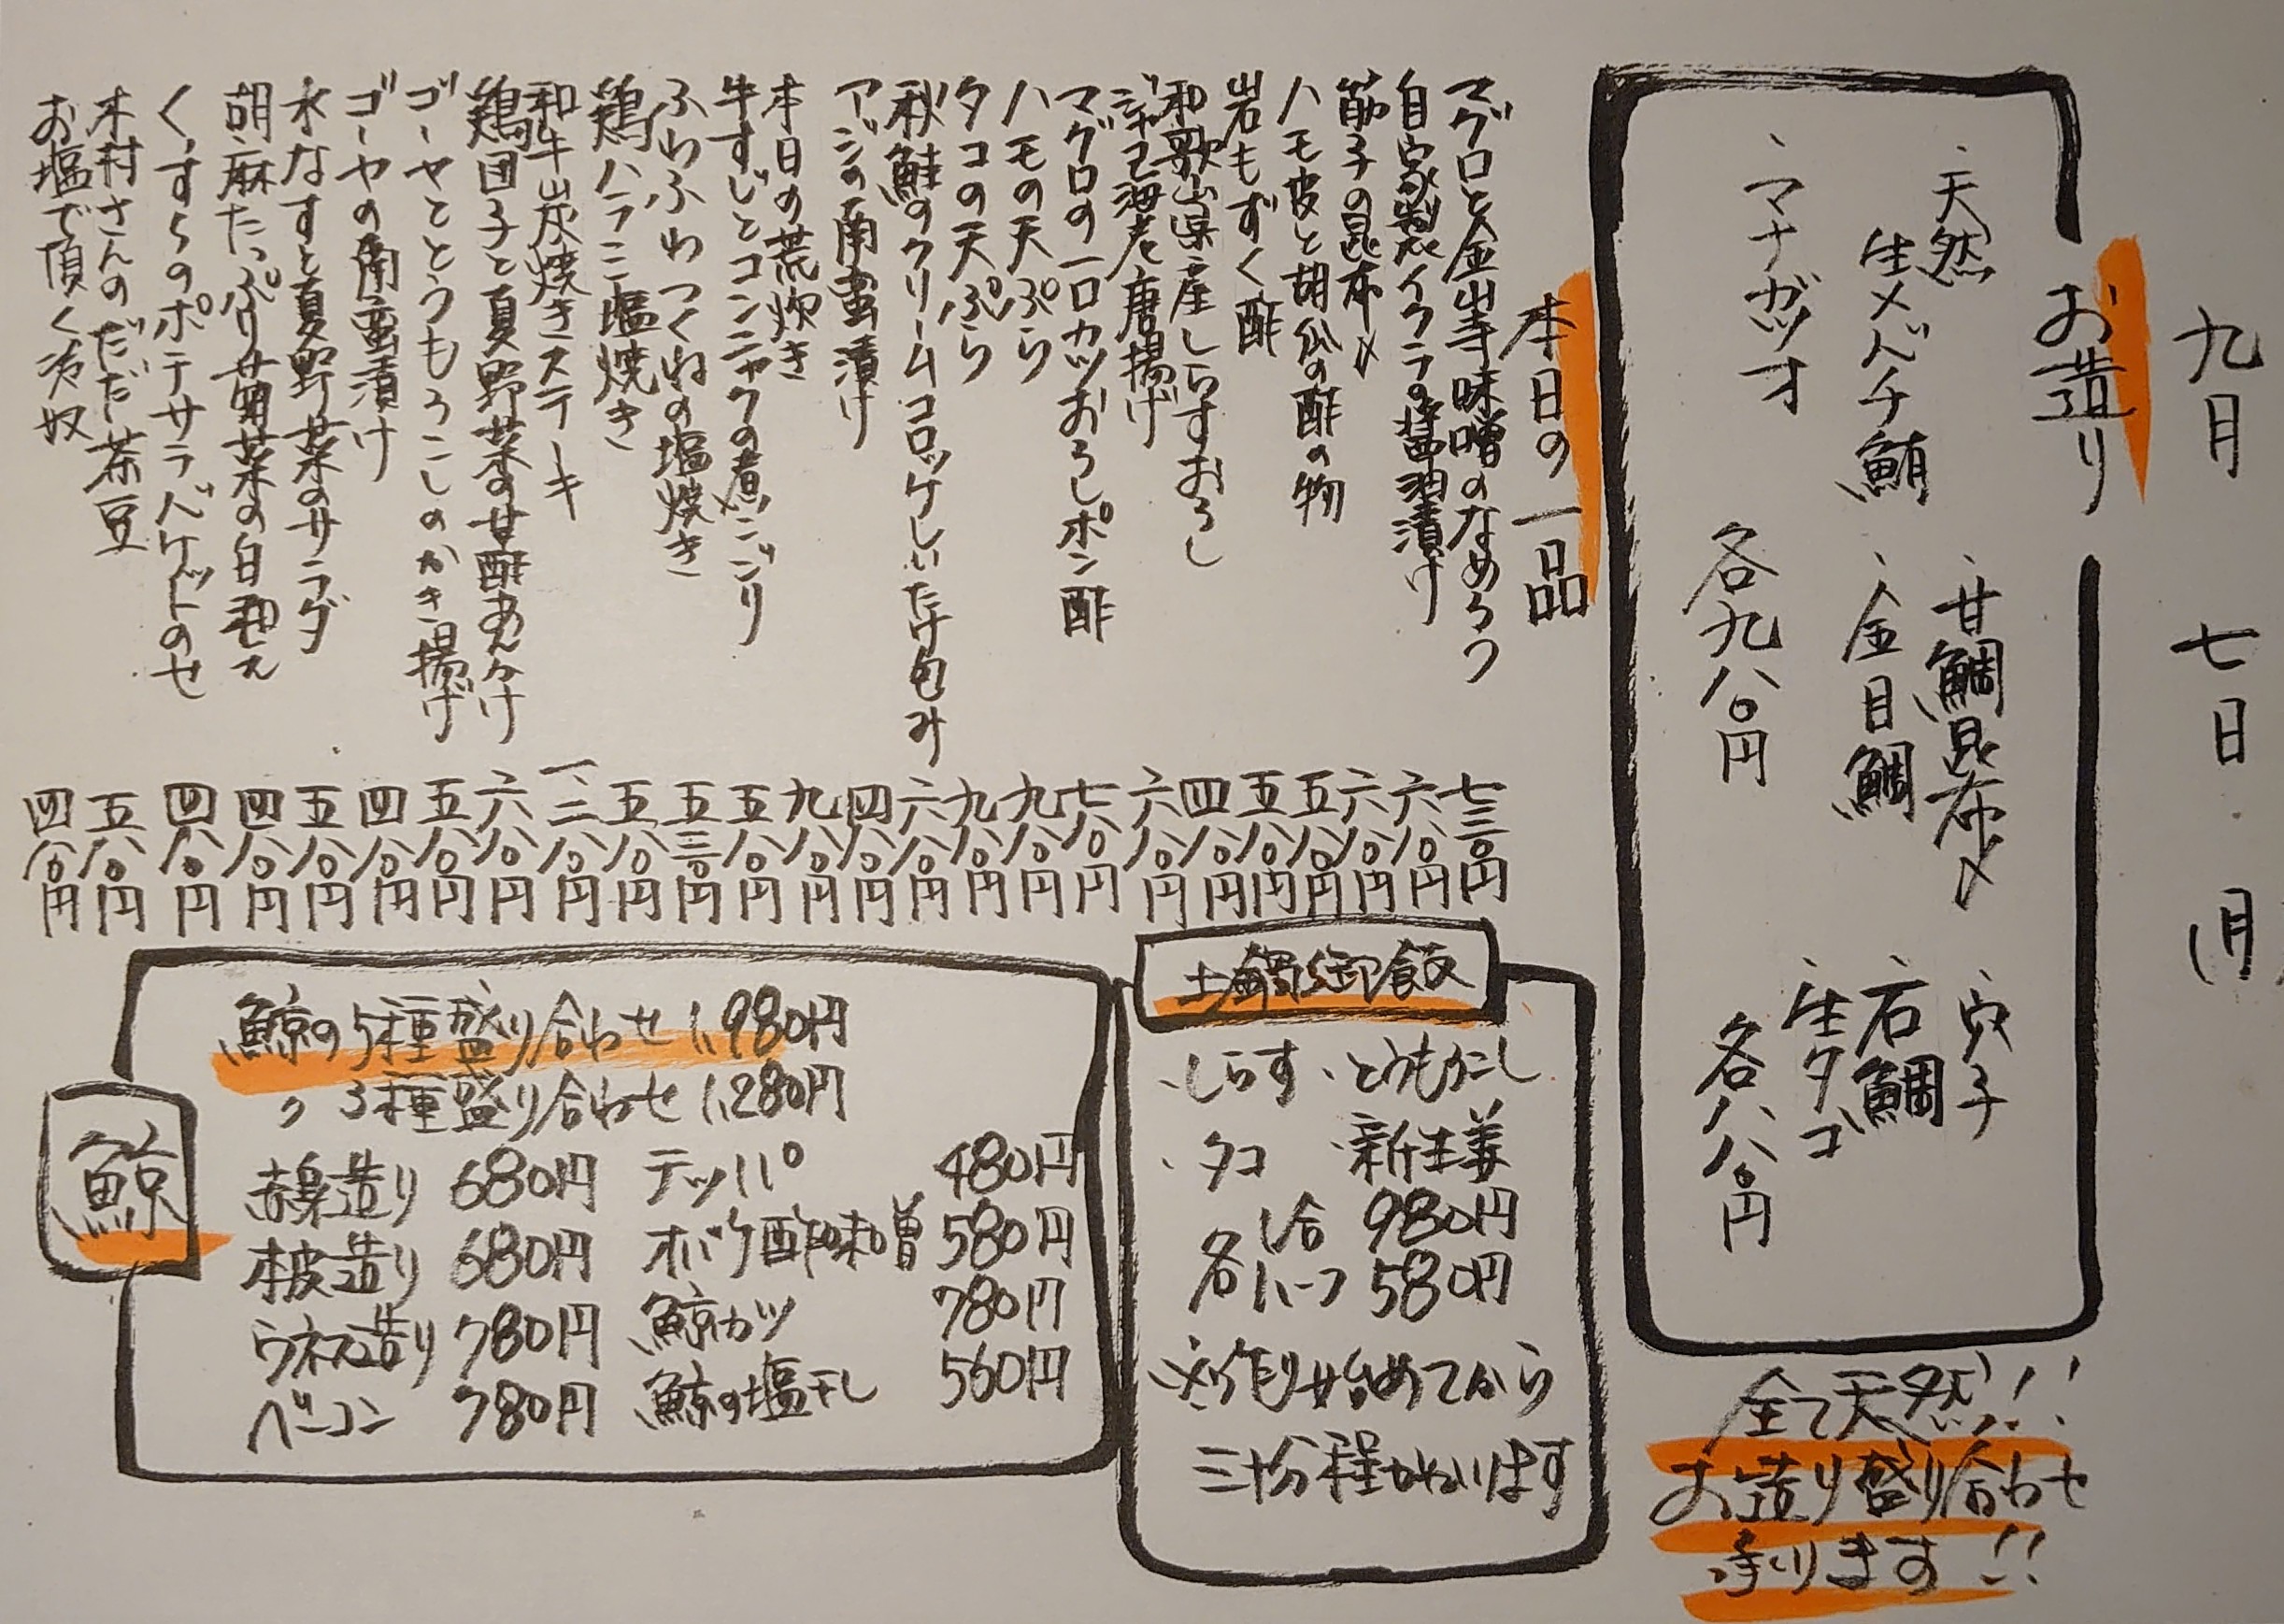 九月 七日・(月)
お造り
・天然 生メバチ鮪
・マナガツオ
・甘鯛昆布〆
・金目鯛
各九八〇円
・穴子
・石鯛
・生タコ
各八八〇円
全て天然!!
お造り盛り合わせ
承ります!!
本日の一品
マグロと金山寺味噌のなめろう 七三〇円
自家製イクラの醤油漬け 六八〇円
筋子の昆布〆 六八〇円
ハモ皮と胡瓜の酢の物 五八〇円
岩もずく酢 五八〇円
和歌山県産しらすおろし 四八〇円
ジャコ海老唐揚げ 六八〇円
マグロの一口カツおろしポン酢 七八〇円
ハモの天ぷら 九八〇円
タコの天ぷら 九八〇円
秋鮭のクリームコロッケしいたけ包み 六八〇円
アジの南蛮漬け 四八〇円
本日の荒炊き 九八〇円
牛すじとコンニャクの煮こごり 五八〇円
ふわふわつくねの塩焼き 五三〇円
鶏ハラミ塩焼き 五八〇円
和牛炭焼きステーキ 一、二八〇円
鶏団子と夏野菜の甘酢あんかけ 六八〇円
ゴーヤととうもろこしのかき揚げ 五八〇円
ゴーヤの南蛮漬け 四八〇円
水なすと夏野菜のサラダ 五八〇円
胡麻たっぷり菊菜の白和え 四八〇円
くずらのポテサラバケットのせ 四八〇円
木村さんのだだ茶豆 五八〇円
お塩で頂く冷奴 四八〇円
土鍋御飯
・しらす ・とうもろこし
・タコ ・新生姜
各1合 980円
各ハーフ 580円
※作り始めてから
三十分程かかります
鯨
鯨の5種盛り合わせ 1,980円
〃 3種盛り合わせ 1,280円
赤身造り 680円 テッパ 480円
本皮造り 680円 オバケ酢味噌 580円
ウネス造り 780円 鯨カツ 780円
ベーコン 780円 鯨の塩干し 560円